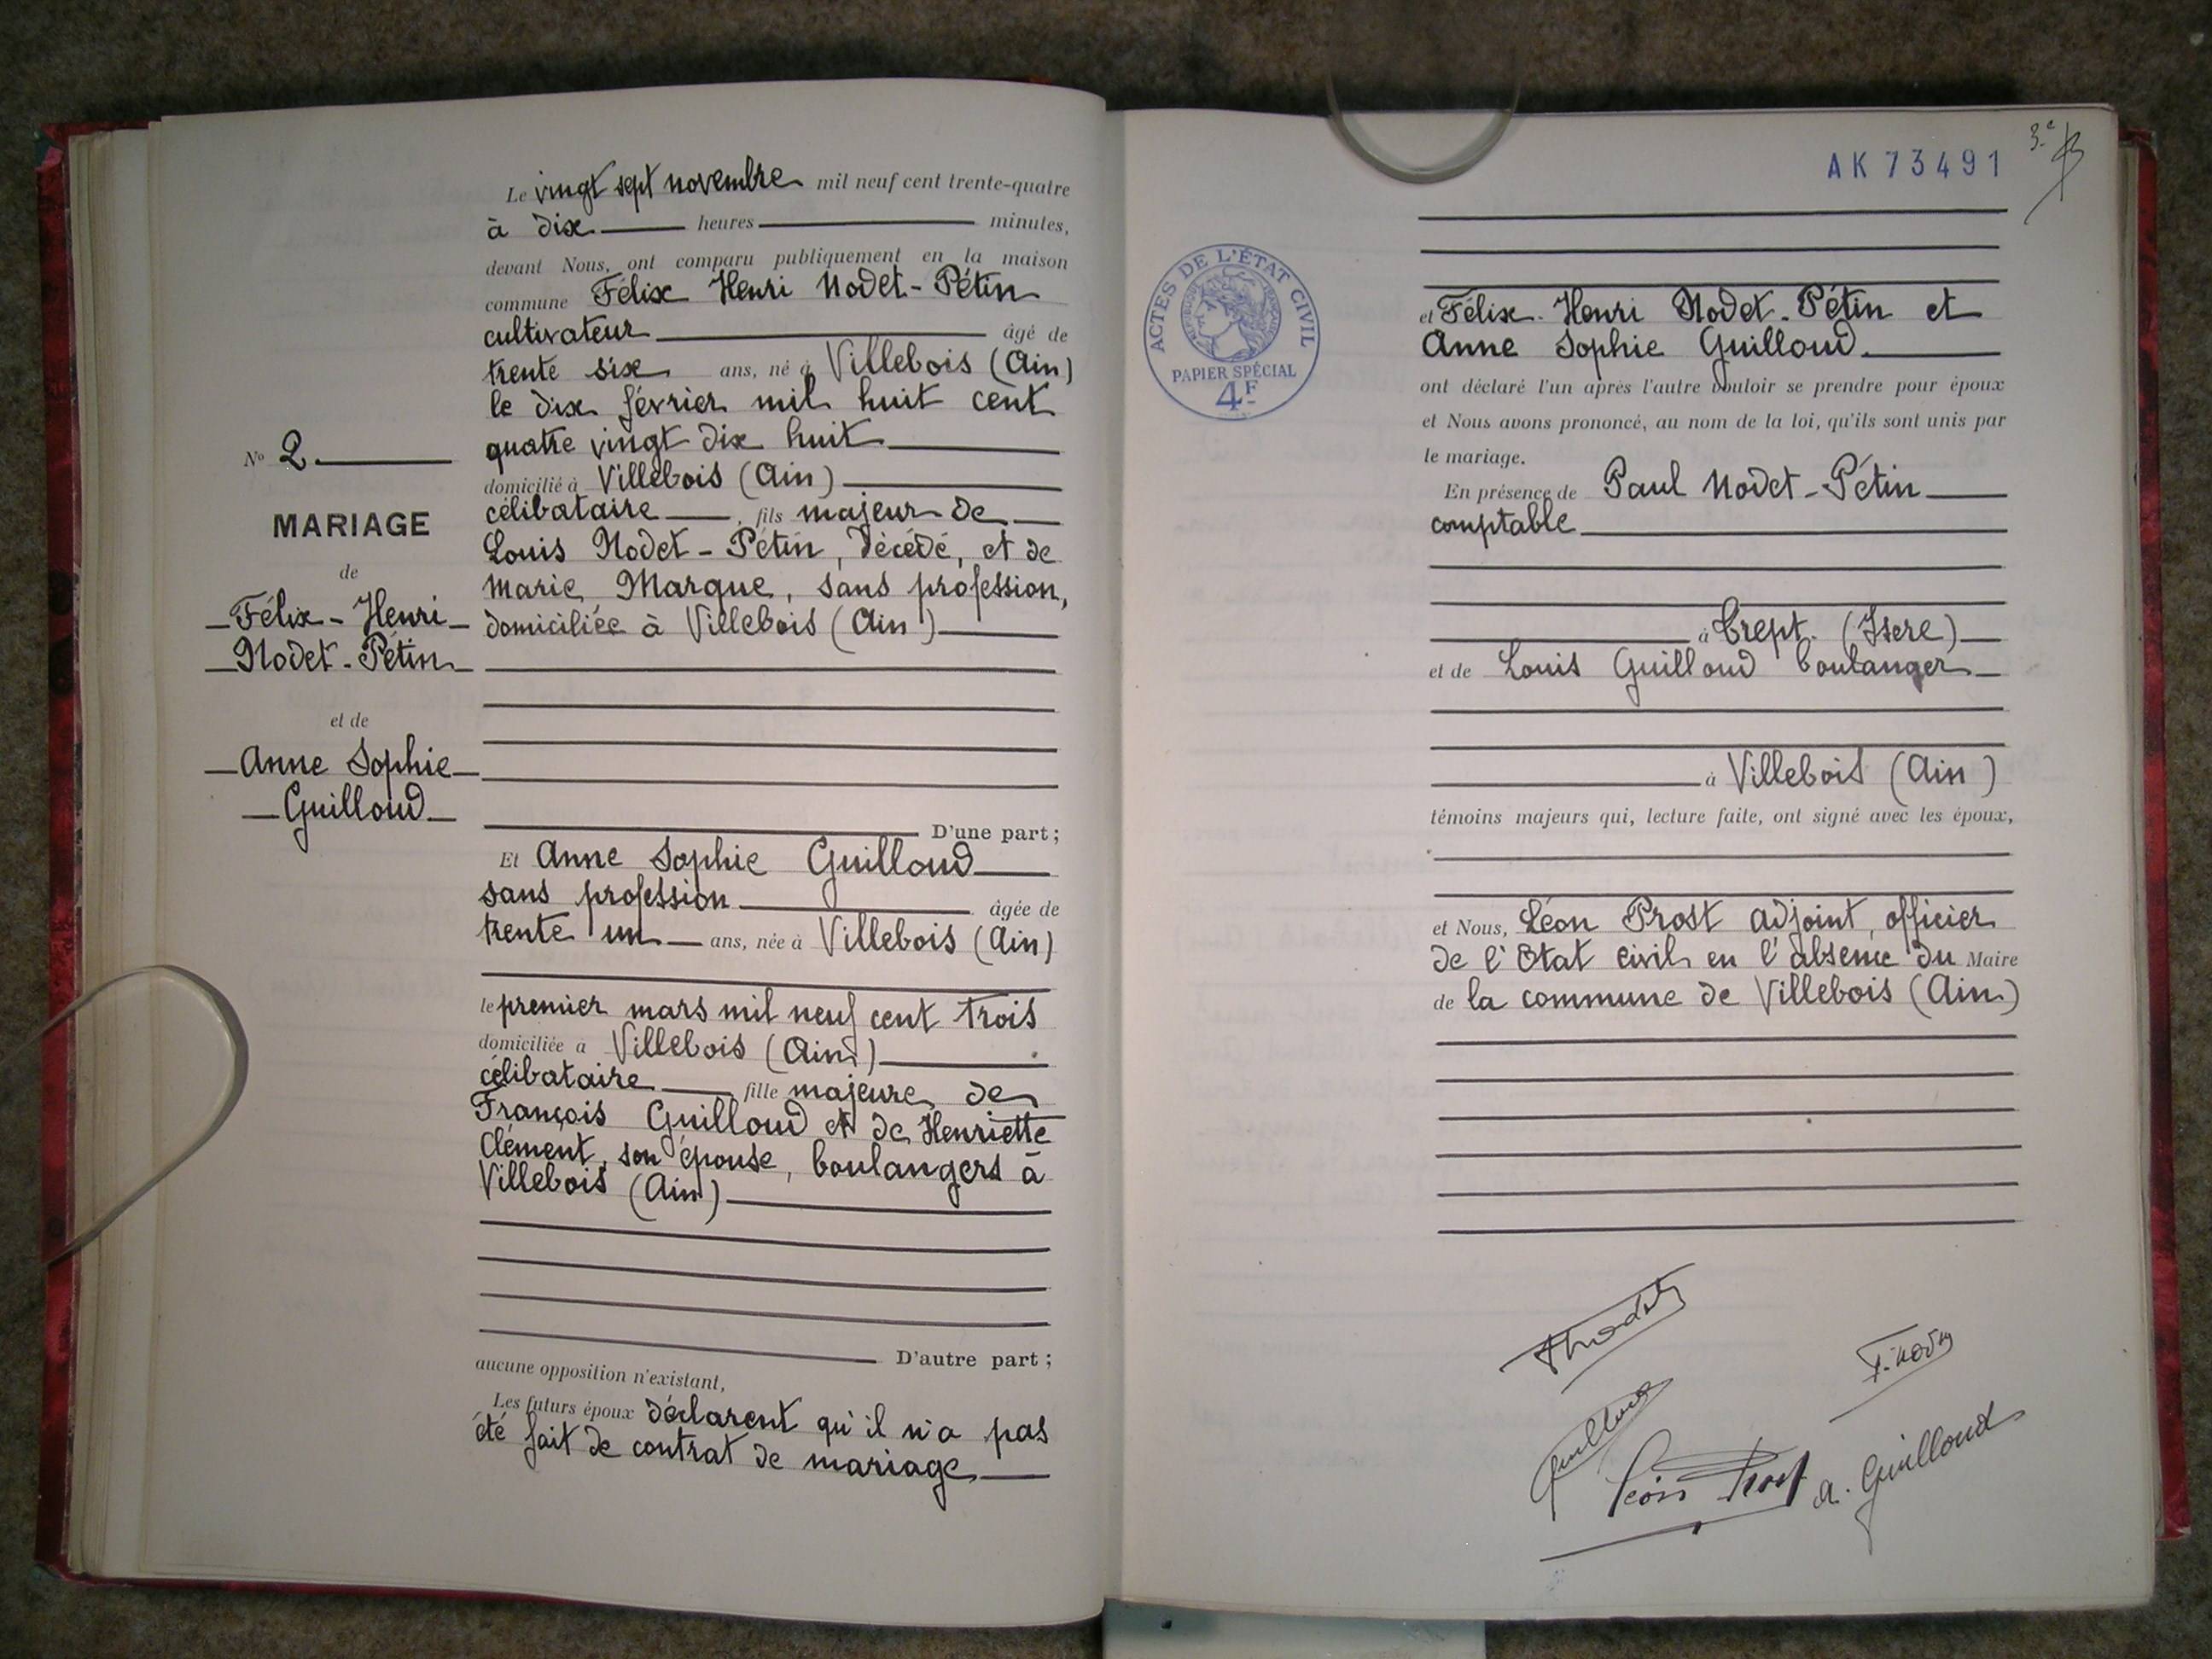 Le vingt sept novembre mil neuf cent trente-quatre
à dix heures minutes,
devant Nous, ont comparu publiquement en la maison
commune Félix Henri Nodet-Pétin
cultivateur âgé de
trente six ans, né à Villebois (Ain)
le dix février mil huit cent
quatre vingt dix huit
domicilié à Villebois (Ain)
célibataire, fils majeur de
Louis Nodet-Pétin, décédé, et de
Marie Marque, sans profession,
domiciliée à Villebois (Ain)
D'une part;
Et Anne Sophie Guilloud
sans profession âgée de
trente un ans, née à Villebois (Ain)
le premier mars mil neuf cent trois
domiciliée à Villebois (Ain)
célibataire fille majeure de
François Guilloud et de Henriette
Clément, son épouse, boulangers à
Villebois (Ain)
D'autre part;
aucune opposition n'existant,
Les futurs époux déclarent qu'il n'a pas
été fait de contrat de mariage
No 2
MARIAGE
de
Félix-Henri
Nodet-Pétin
et de
Anne Sophie
Guilloud
AK 73491
3e
ACTES DE L'ÉTAT CIVIL
RÉPUBLIQUE FRANÇAISE
PAPIER SPÉCIAL
4F
et Félix-Henri Nodet-Pétin et
Anne Sophie Guilloud
ont déclaré l'un après l'autre vouloir se prendre pour époux
et Nous avons prononcé, au nom de la loi, qu'ils sont unis par
le mariage.
En présence de Paul Nodet-Pétin
comptable
à Crept. (Isère)
et de Louis Guilloud boulanger
à Villebois (Ain)
témoins majeurs qui, lecture faite, ont signé avec les époux,
et Nous, Léon Prost adjoint, officier
de l'Etat civil en l'absence du Maire
de la commune de Villebois (Ain)
Guilloud
Léon Prost
A. Guilloud